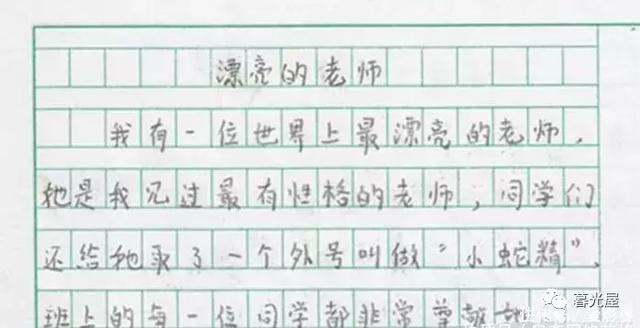 漂亮的老师
我有一位世界上最漂亮的老师.
她是我见过最有性格的老师,同学们
还给她取了一个外号叫做"小蛇精".
班上的每一位同学都非常尊敬她
暮光屋